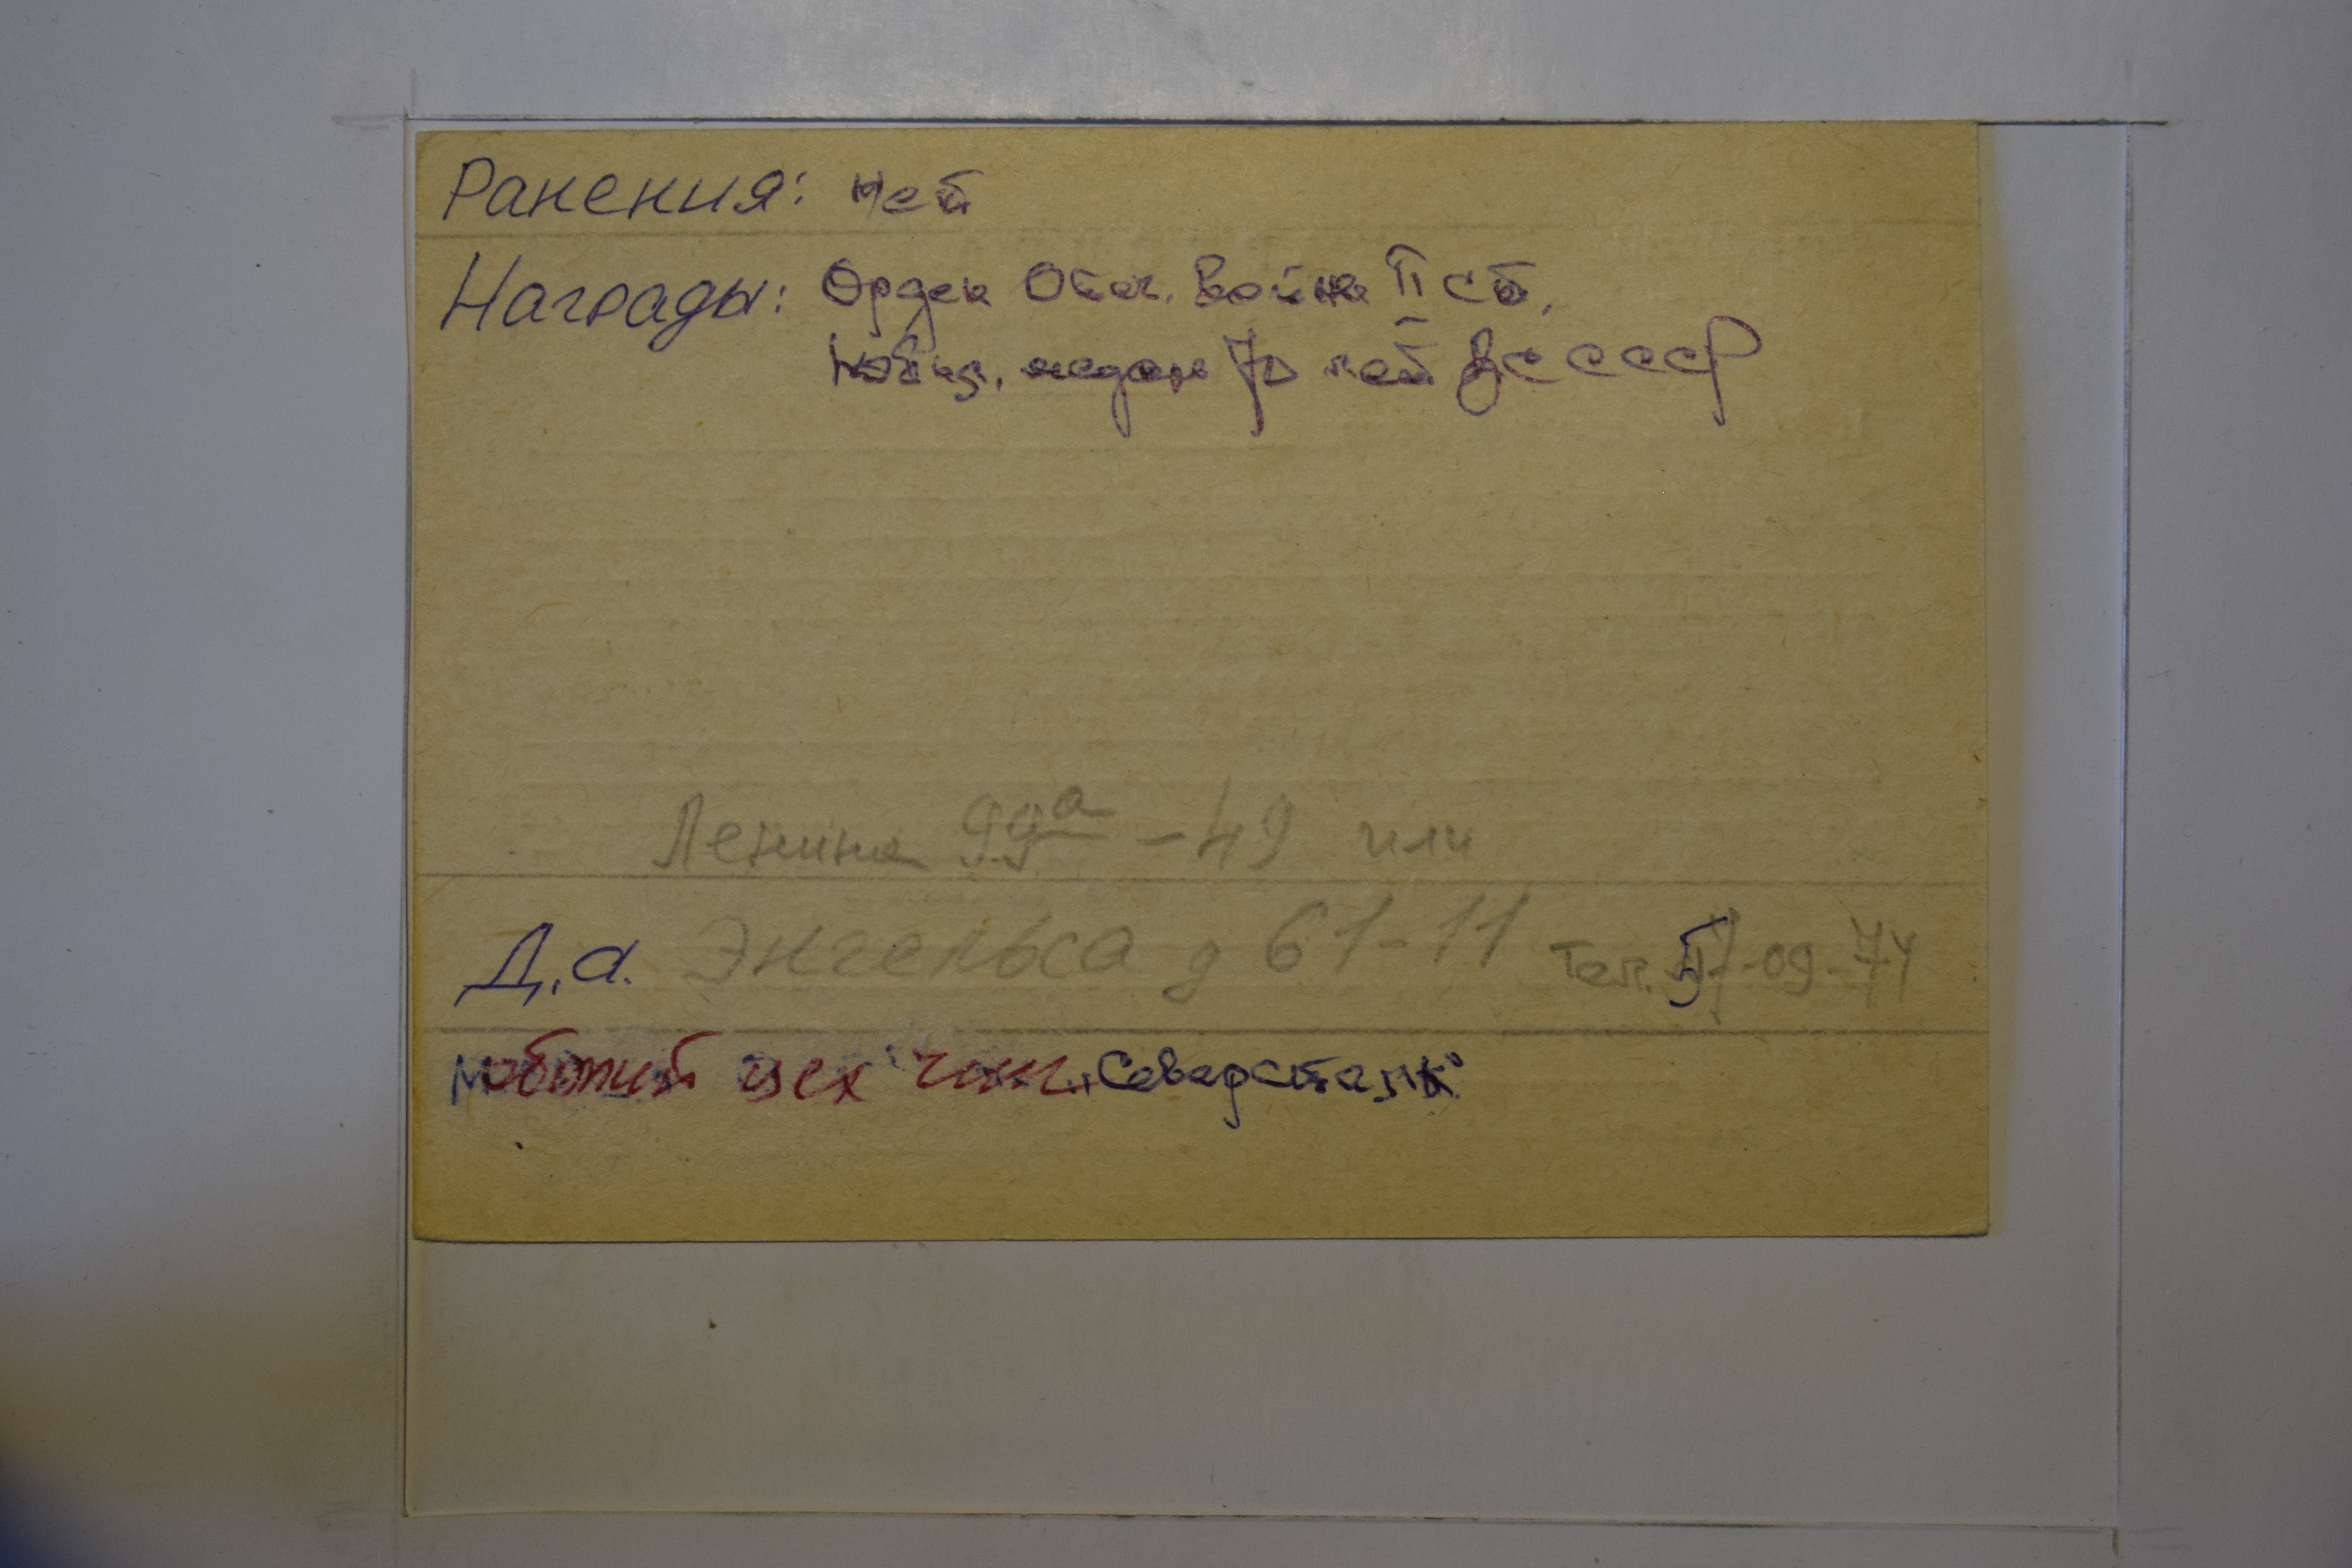 Ранения: нет
Награды: Орден Отеч. Войны II ст,
Юбил. медаль 70 лет ВС СССР
Ленина 99а - 49 или
Д.а. Энгельса д 61-11 Тел. -09-74
цех "Северсталь"